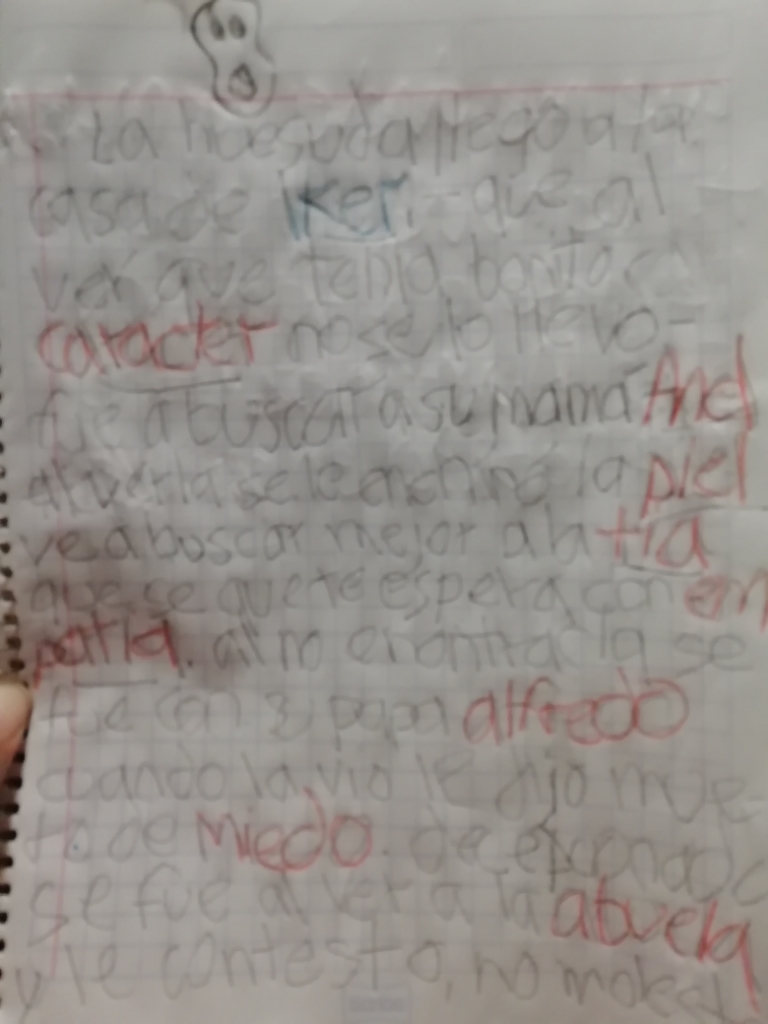 La huesuda llego a la
casa de Iker, que al
ver que tenia bonito
caracter no se lo llevo-
fue a buscar a su mamá Anel
al verla se le enchino la piel
ve a buscar mejor a la tia
que se que te espera con em
patia. al no encontrarla se
fue con su papa alfredo
cuando la vio le dijo mue-
to de miedo. de
se fue al ver a la abuela
y le contesto, no